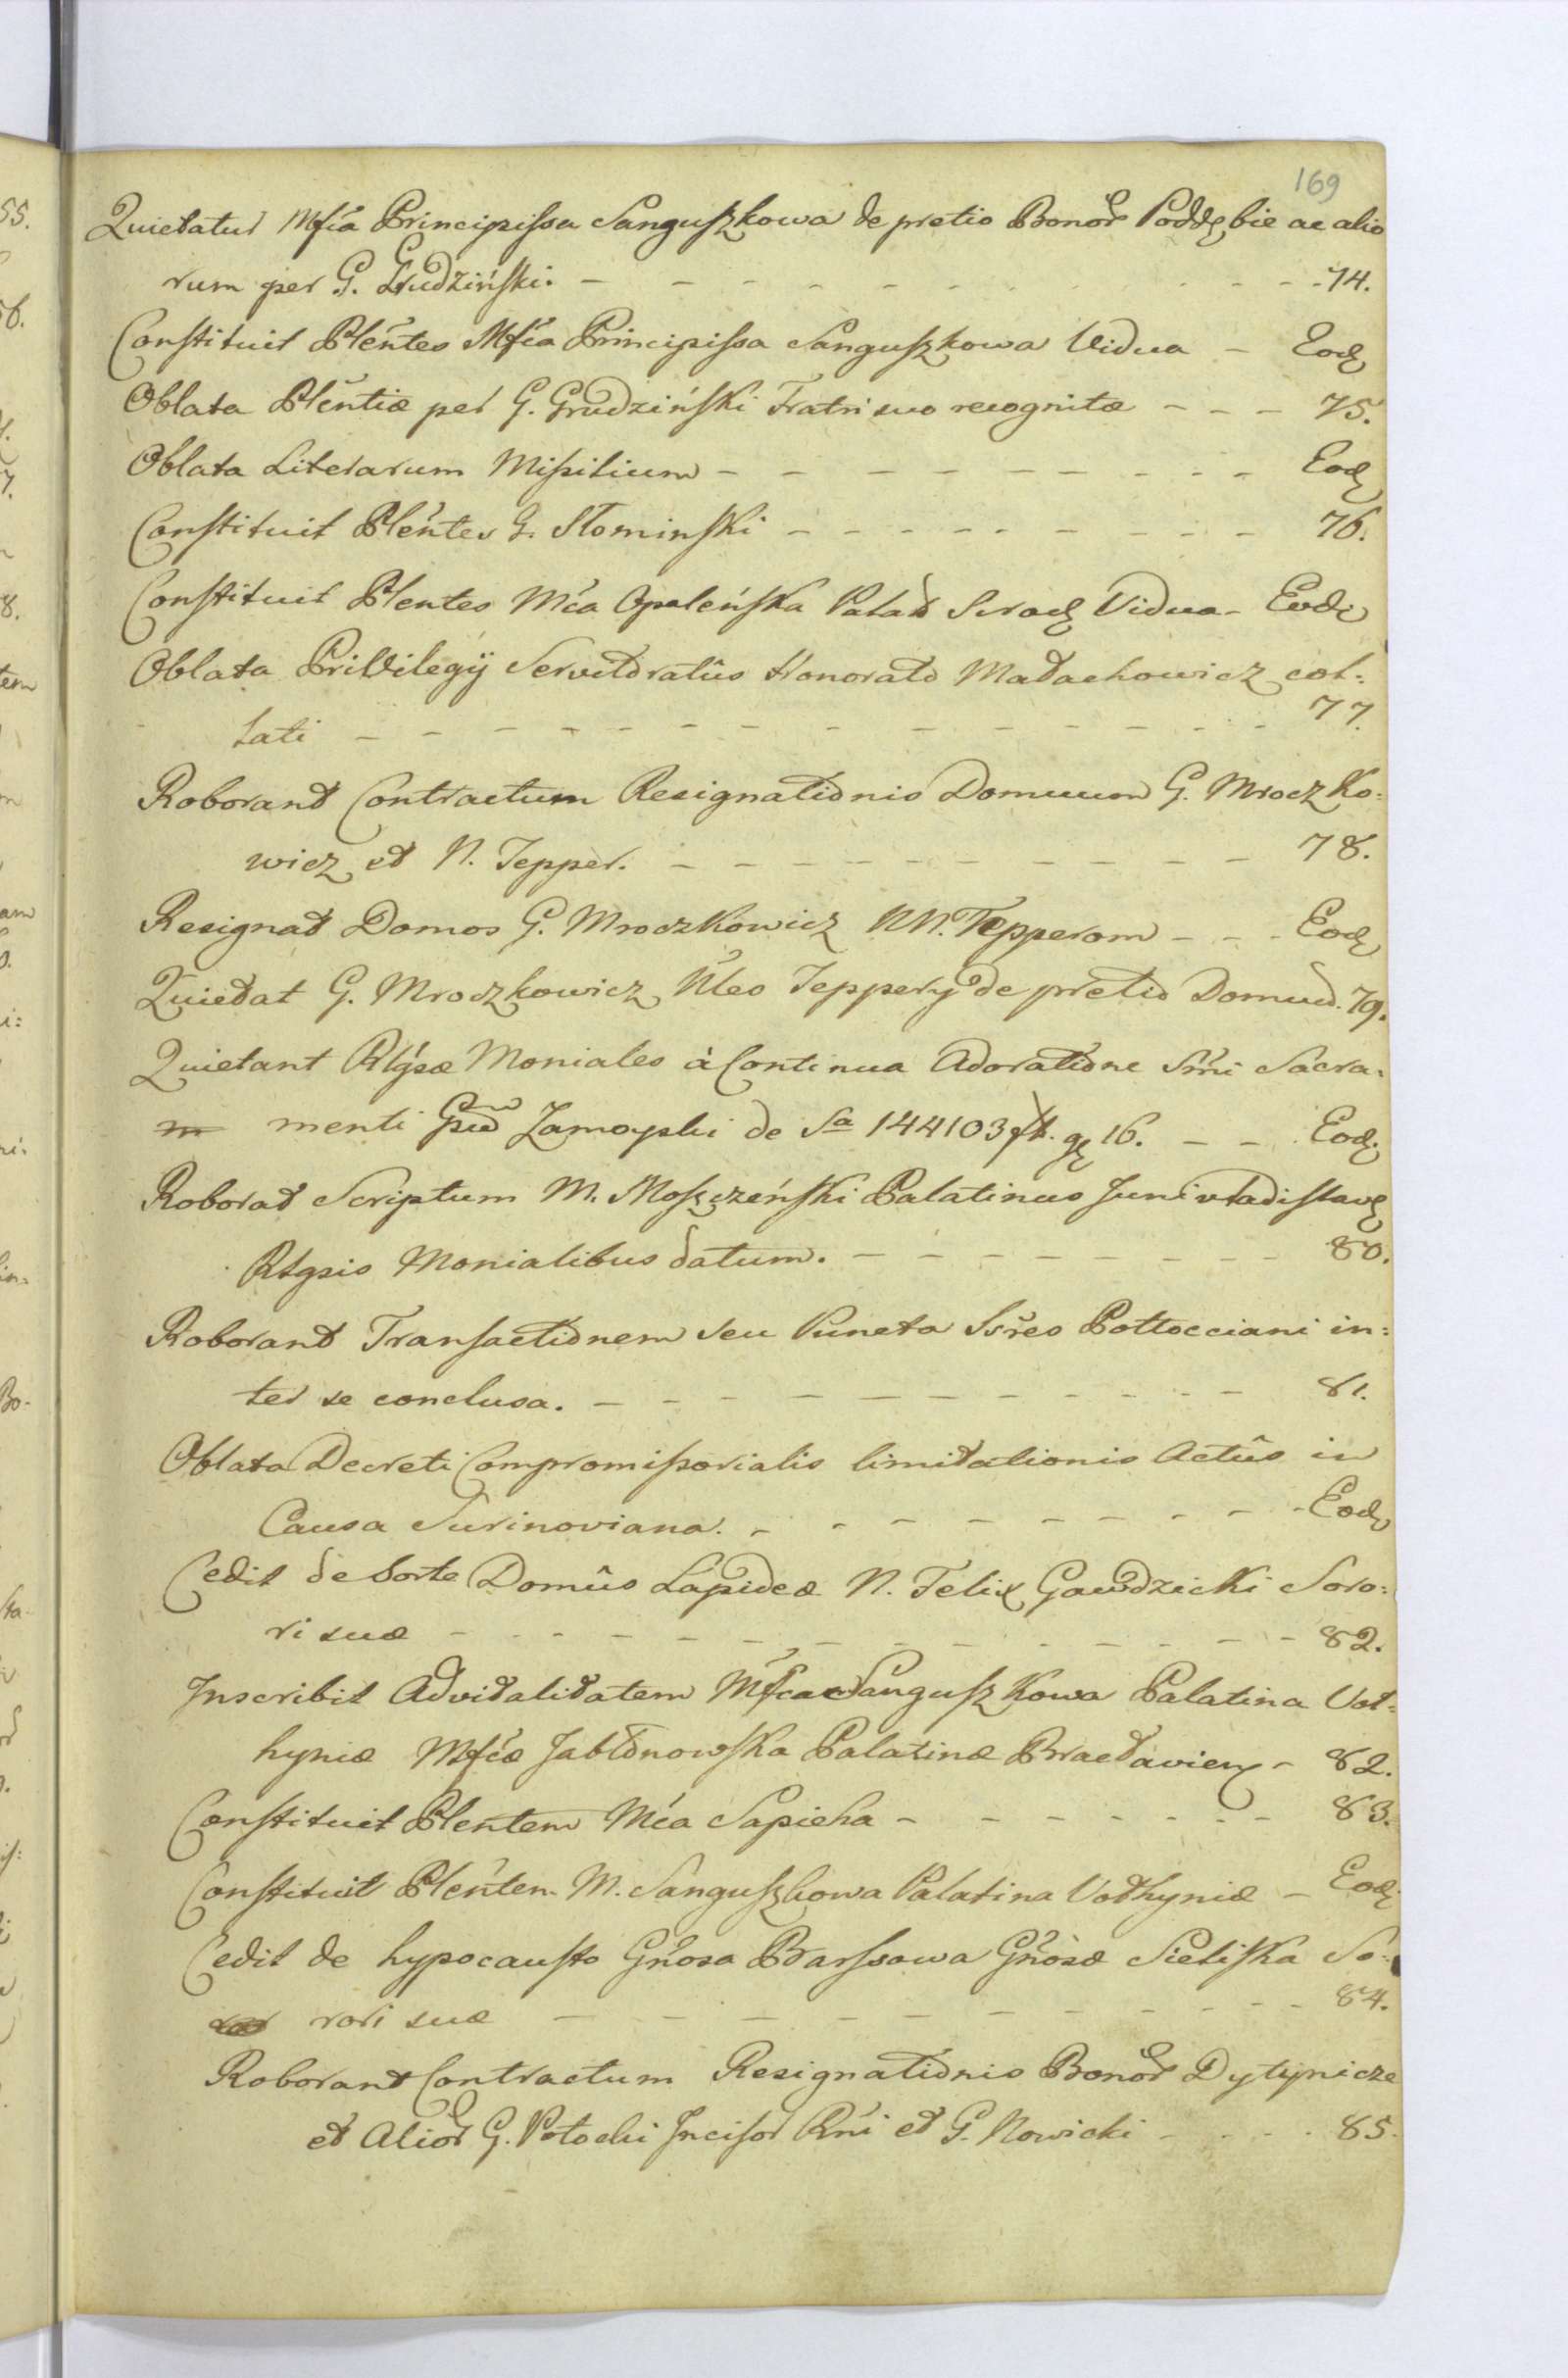 169
Quietatur Mfića Principissa Sanguszkowa de pretio Bonor Poddębie ac alio
rum per G. Grudziński. - - - - - - - - - 74.
Constituit Pleńtes Mfića Principissa Sanguszkowa Vidua - Eod
Oblata Pleńtiæ per G. Grudziński Fratri suo recognitæ - - - 75.
Oblata Literarum Missilium - - - - - - - - - Eod
Constituit Pleńtes G. Słominski - - - - - - - - 76.
Constituit Plentes Mća Opaleńska Palat Sirad Vidua - Eod
Oblata Privilegij Servitoratûs Honorato Małachowicz col:
lati - - - - - - - - - - - - - - 77.
Roborant Contractum Resignationis Domuum G. Mroczko:
wicz et N. Tepper. - - - - - - - - - 78.
Resignat Domos G. Mroczkowicz NN. Tepperom - - - Eod
Quietat G. Mroczkowicz Nleo Teppery de pretio Domuu. 79.
Quietant Rlgsæ Moniales à Continua Adoratione Smi Sacra:
menti Zamoyski de Sa 144103 fl. g 16. - - Eod.
Roborat Scriptum M. Moszczeński Palatinus Junivladislav
Rlgsis Monialibus datum. - - - - - - - - 80.
Roborant Transactionem seu Puncta Ssres Pottocciani in:
ter se conclusa. - - - - - - - - - - 81.
Oblata Decreti Compromissorialis limitationis Actûs in
Causa Surinoviana. - - - - - - - - - Eod
Cedit de Sorte Domûs Lapideæ N. Felix Gawdzicki Soro:
ri suæ - - - - - - - - - - - - - 82.
Inscribit Advitalitatem Mfca Sanguszkowa Palatina Vol:
hyniæ Mfćæ Jabłonowska Palatinæ Bracłavien - 82.
Constituit Plentem Mća Sapieha - - - - - - - 83.
Constituit Pleńtem M. Sanguszkowa Palatina Volhyniæ - Eod
Cedit de hypocausto Gńosa Barssowa Gńosæ Sieliska So:
rori suæ - - - - - - - - - - - 84.
Roborant Contractum Resignationis Bonor Dytynicze
et Alior G. Potocki Incisor Rni et G. Nowicki - - - 85.